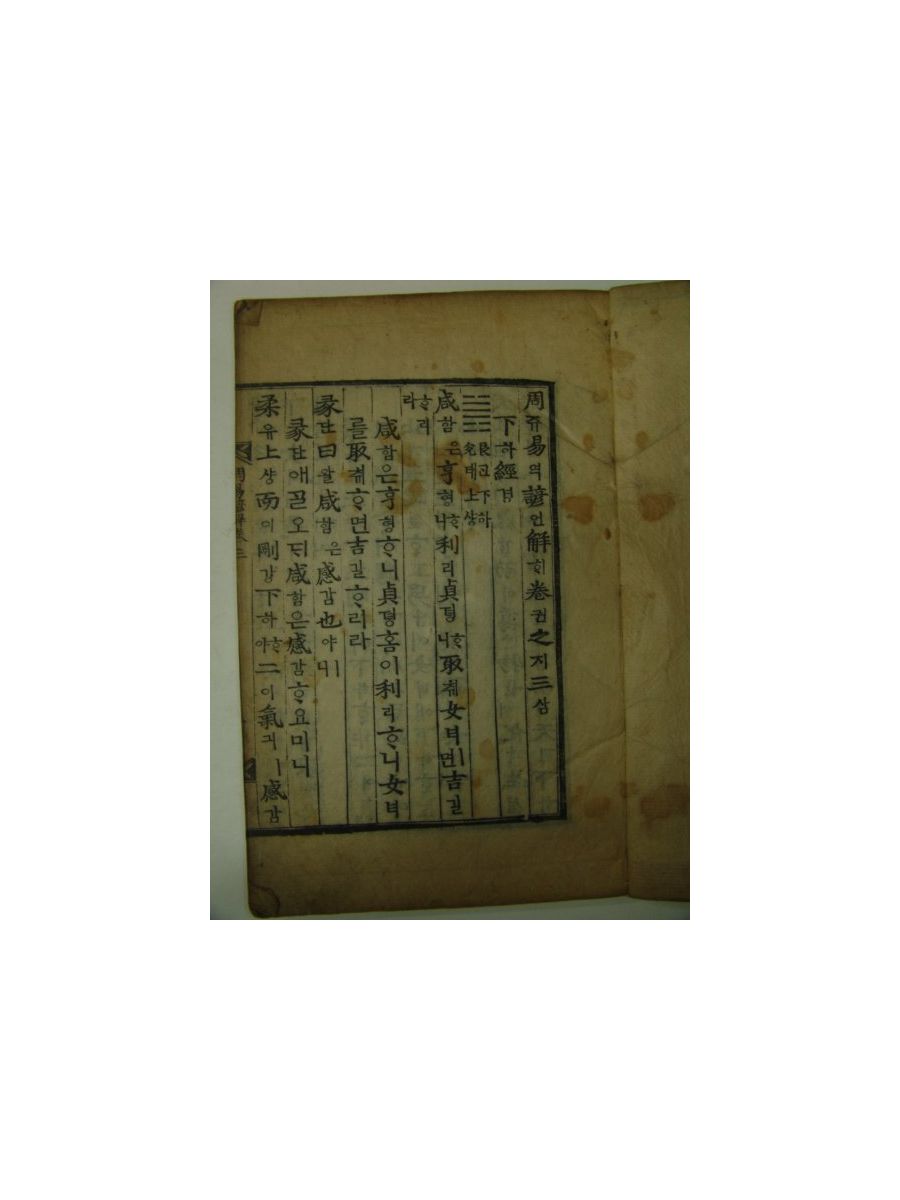 周쥬易역諺언解ᄒᆡ卷권之지三삼
下하經경
艮간下하 兌태上샹
咸함은亨형ᄒᆞ니利리貞뎡ᄒᆞ니取츄ㅣ女녀ㅣ면吉길
ᄒᆞ리라
咸함은亨형ᄒᆞ니貞뎡홈이利리ᄒᆞ니女녀
를取ᄎᆔᄒᆞ면吉길ᄒᆞ리라
彖단曰왈咸함은感감也야ㅣ니
彖단애ᄀᆞᆯ오ᄃᆡ咸함은感감ᄒᆞ욤이니
柔유上샹而이剛강下하ᄒᆞ야二이氣긔ㅣ感감
周易諺解卷三